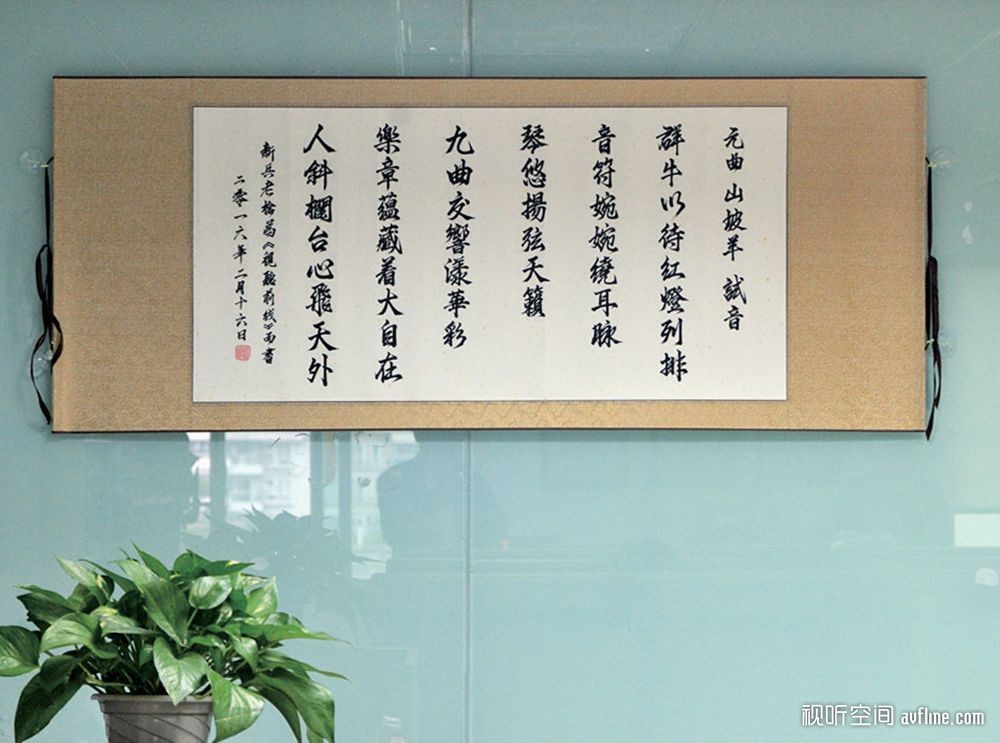 元曲 山坡羊 試音
群牛以待红燈列排
音符婉婉繞耳脉
琴悠揚弦天籟
九曲交響漾華彩
樂章蕴藏着大自在
人斜欄台心飛天外
新兵老槍為《視聽前线》而書
二零一六年二月十六日
视听空间 avfline.com